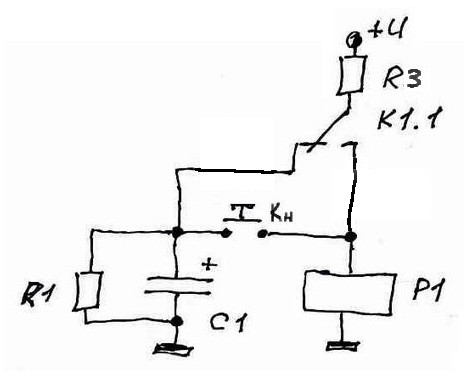 +U
R3
K1.1
Kн
+
R1
C1
P1